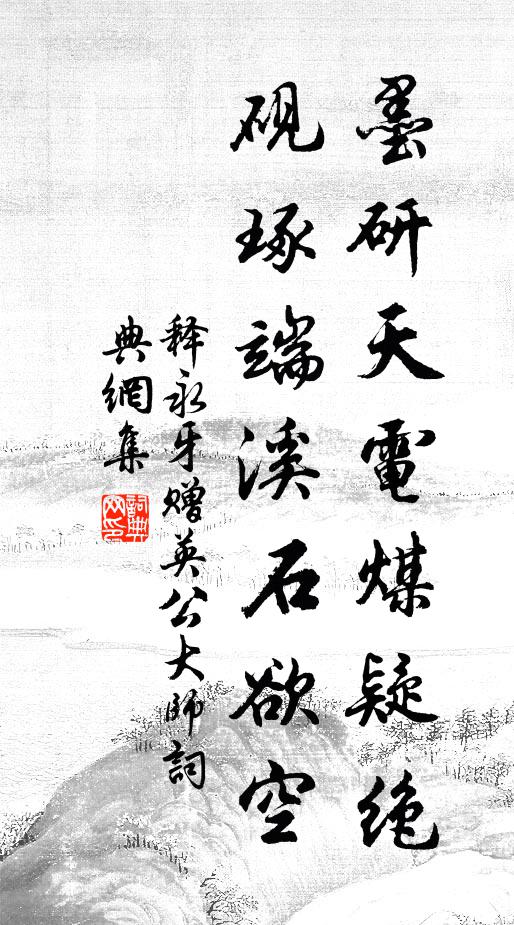 墨研天電煤疑絶
硯琢端溪石欲空
释永牙赠英公大师詞
典網集
詞典
网